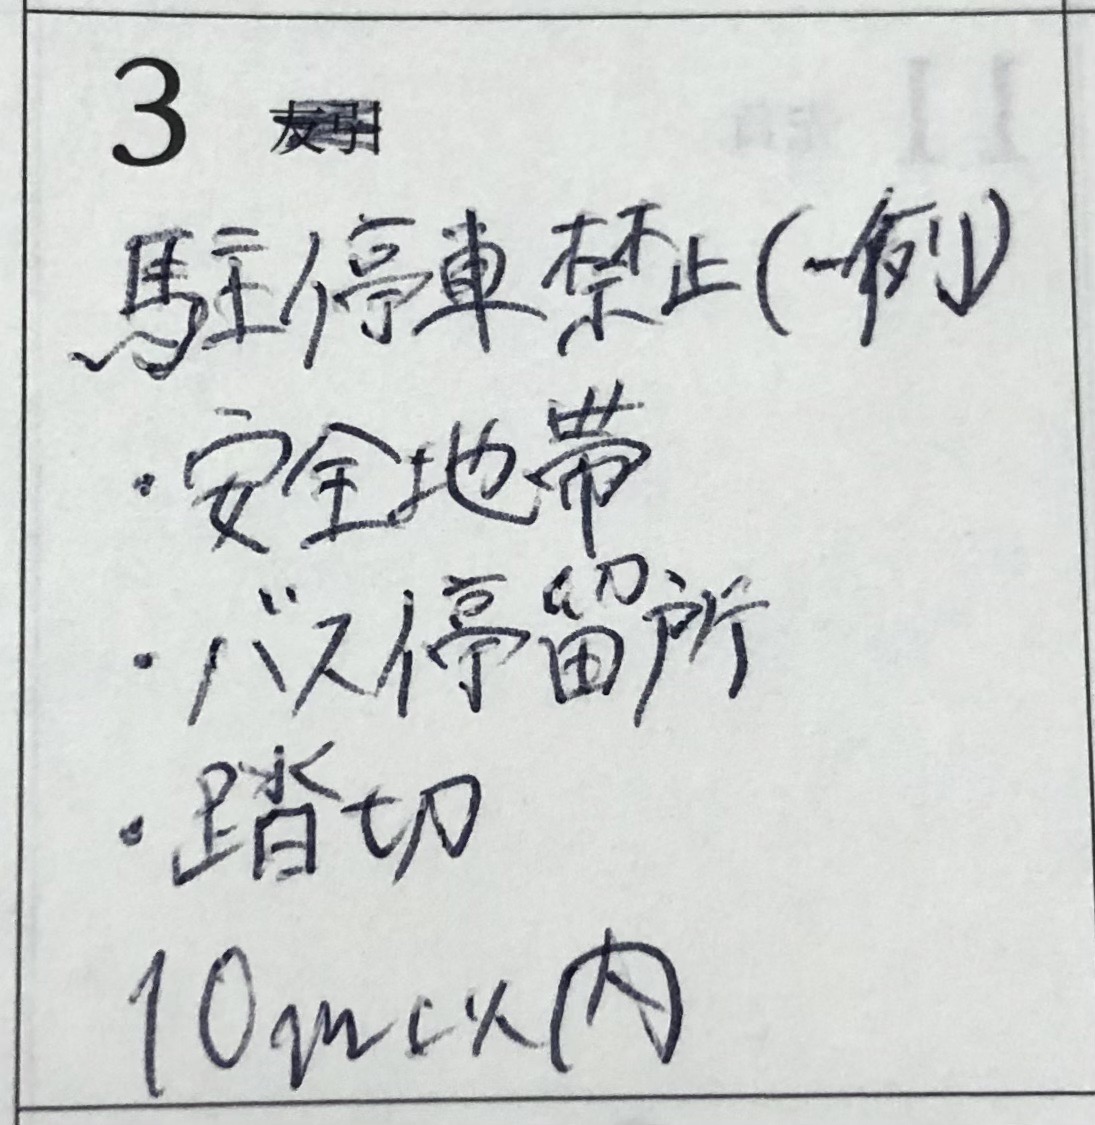 3 友引
駐停車禁止(一例)
・安全地帯
・バス停留所
・踏切
10m以内